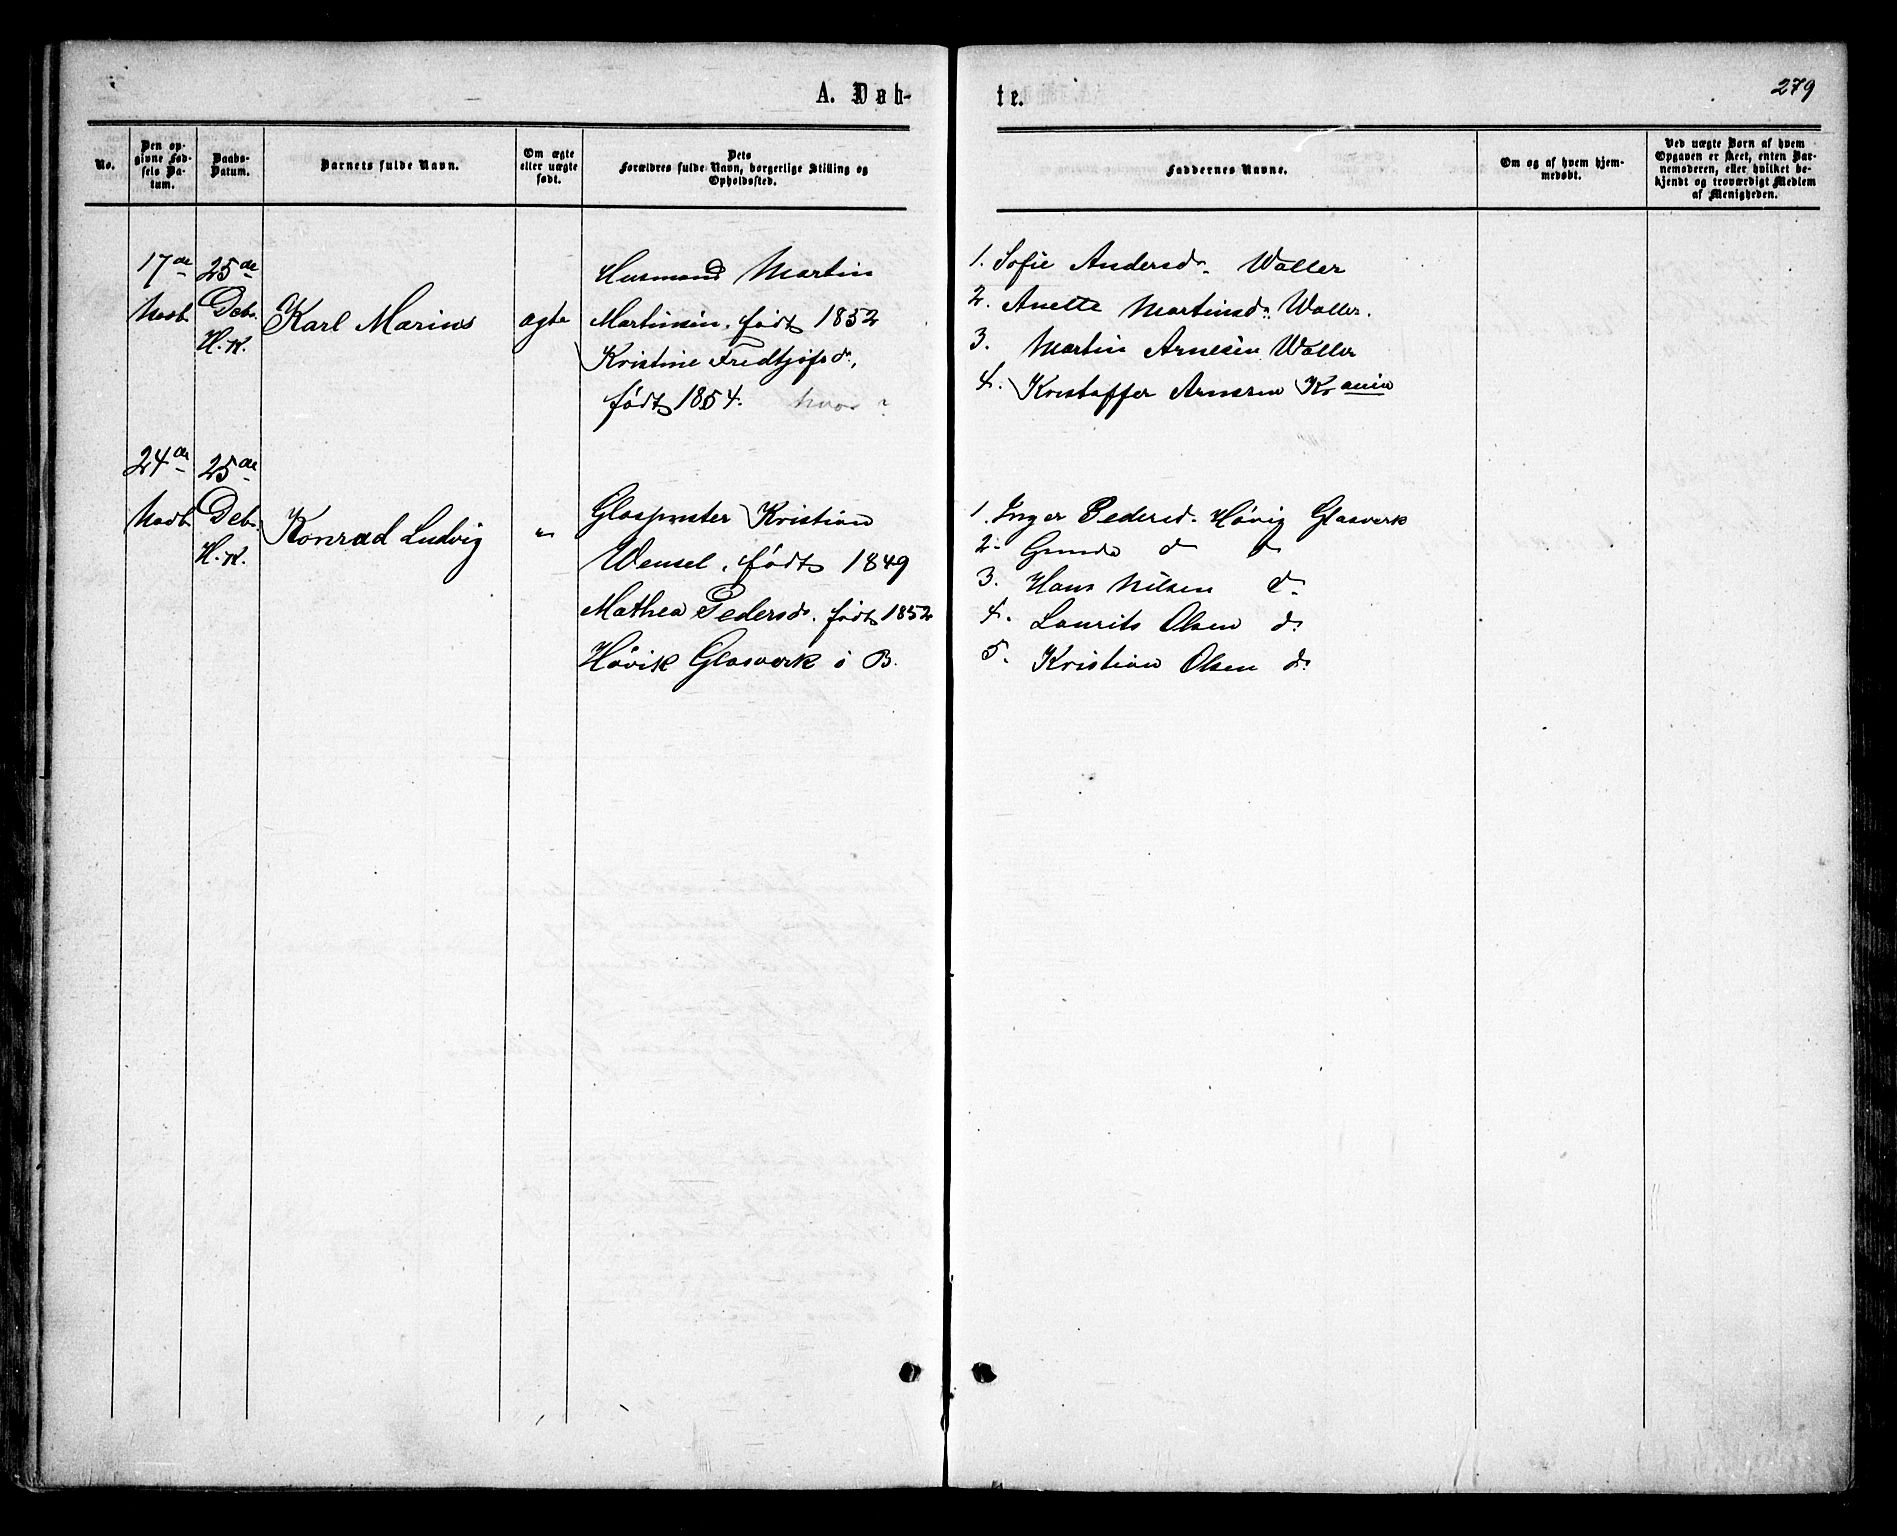 A. Døb-
te.
279
No.
Den op-
givne Fød-
sels Da-
tum.
Daabs-
Datum.
Barnets fulde Navn.
Om ægte
eller uægte
født.
Dets
Forældres fulde Navn, borgerlige Stilling og
Opholdssted.
Faddernes Navne.
Om og af hvem hjem-
medøbt.
Ved uægte Børn af hvem
Opgaven er skeet, enten Bar-
nemoderen, eller hvilket be-
kjendt og troværdigt Medlem
af Menigheden.
17de
Novb.
25de
Decb.
H.K.
Karl Marius
ægte
Husmand Martin
Martinsen, født 1852
Kristine Fredtjofsd.,
født 1854. hvor?
1. Sofie Andersd. Waller
2. Anette Martinsd. Waller.
3. Martin Arnesen Waller
4. Kristoffer Arnesen
24de
Novb.
25de
Decb.
H.K.
Konrad Ludvig
"
Glaspuster Kristian
Wensel, født 1849
Mathea Pedersd. født 1852
Høvik Glasverk i B.
1. Inger Pedersd. Høvig Glasverk
2. Gunda do do
3. Hans Nilsen do
4. Laurits Olsen do
5. Kristian Olsen do